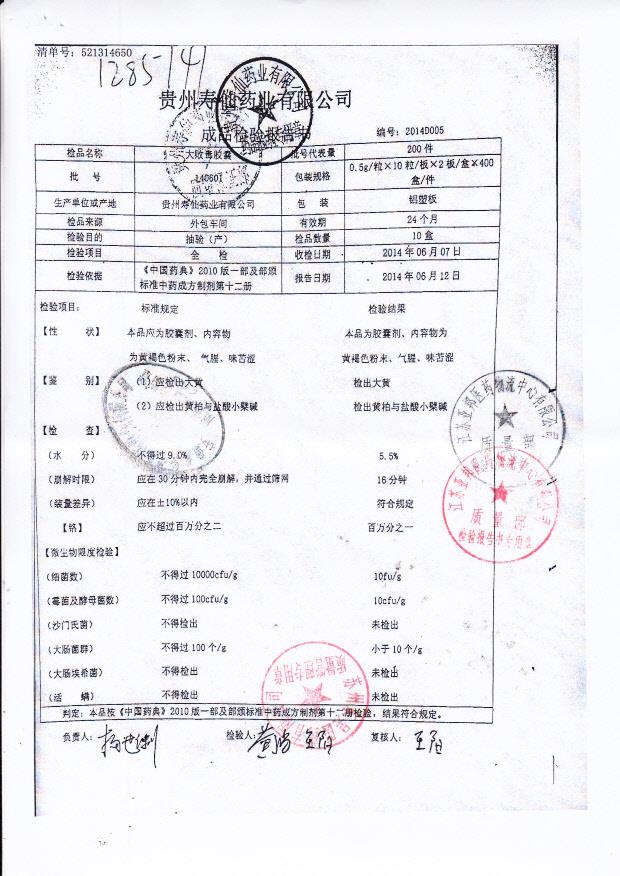 清单号：521314650
1285
贵州寿仙药业有限公司
成品检验报告书
编号：2014D005
检品名称 大败毒胶囊 批号代表量 200 件
批 号 140601 包装规格 0.5g/粒×10 粒/板×2 板/盒×400
盒/件
生产单位或产地 贵州寿仙药业有限公司 包 装 铝塑板
检品来源 外包车间 有效期 24 个月
检验目的 抽验（产） 检品数量 10 盒
检验项目 全 检 收检日期 2014 年 06 月 07 日
检验依据 《中国药典》2010 版一部及部颁
标准中药成方制剂第十二册 报告日期 2014 年 06 月 12 日
检验项目： 标准规定 检验结果
【性 状】 本品应为胶囊剂、内容物 本品为胶囊剂、内容物为
为黄褐色粉末、 气腥、味苦涩 黄褐色粉末、气腥、味苦涩
【鉴 别】 （1）应检出大黄 检出大黄
（2）应检出黄柏与盐酸小檗碱 检出黄柏与盐酸小檗碱
【检 查】
（水 分） 不得过 9.0% 5.5%
（崩解时限） 应在 30 分钟内完全崩解，并通过筛网 16 分钟
（装量差异） 应在±10%以内 符合规定
【铬】 应不超过百万分之二 百万分之一
【微生物限度检验】
（细菌数） 不得过 10000cfu/g 10fu/g
（霉菌及酵母菌数） 不得过 100cfu/g 10cfu/g
（沙门氏菌） 不得检出 未检出
（大肠菌群） 不得过 100 个/g 小于 10 个/g
（大肠埃希菌） 不得检出 未检出
（活 螨） 不得检出 未检出
判定：本品按《中国药典》2010 版一部及部颁标准中药成方制剂第十二册检验，结果符合规定。
负责人： 检验人： 王阳 复核人： 王阳
江苏亚邦医药物流中心有限公司
质量部
江苏亚邦医药物流中心有限公司
质量部
检验报告书专用章
质量管理专用章